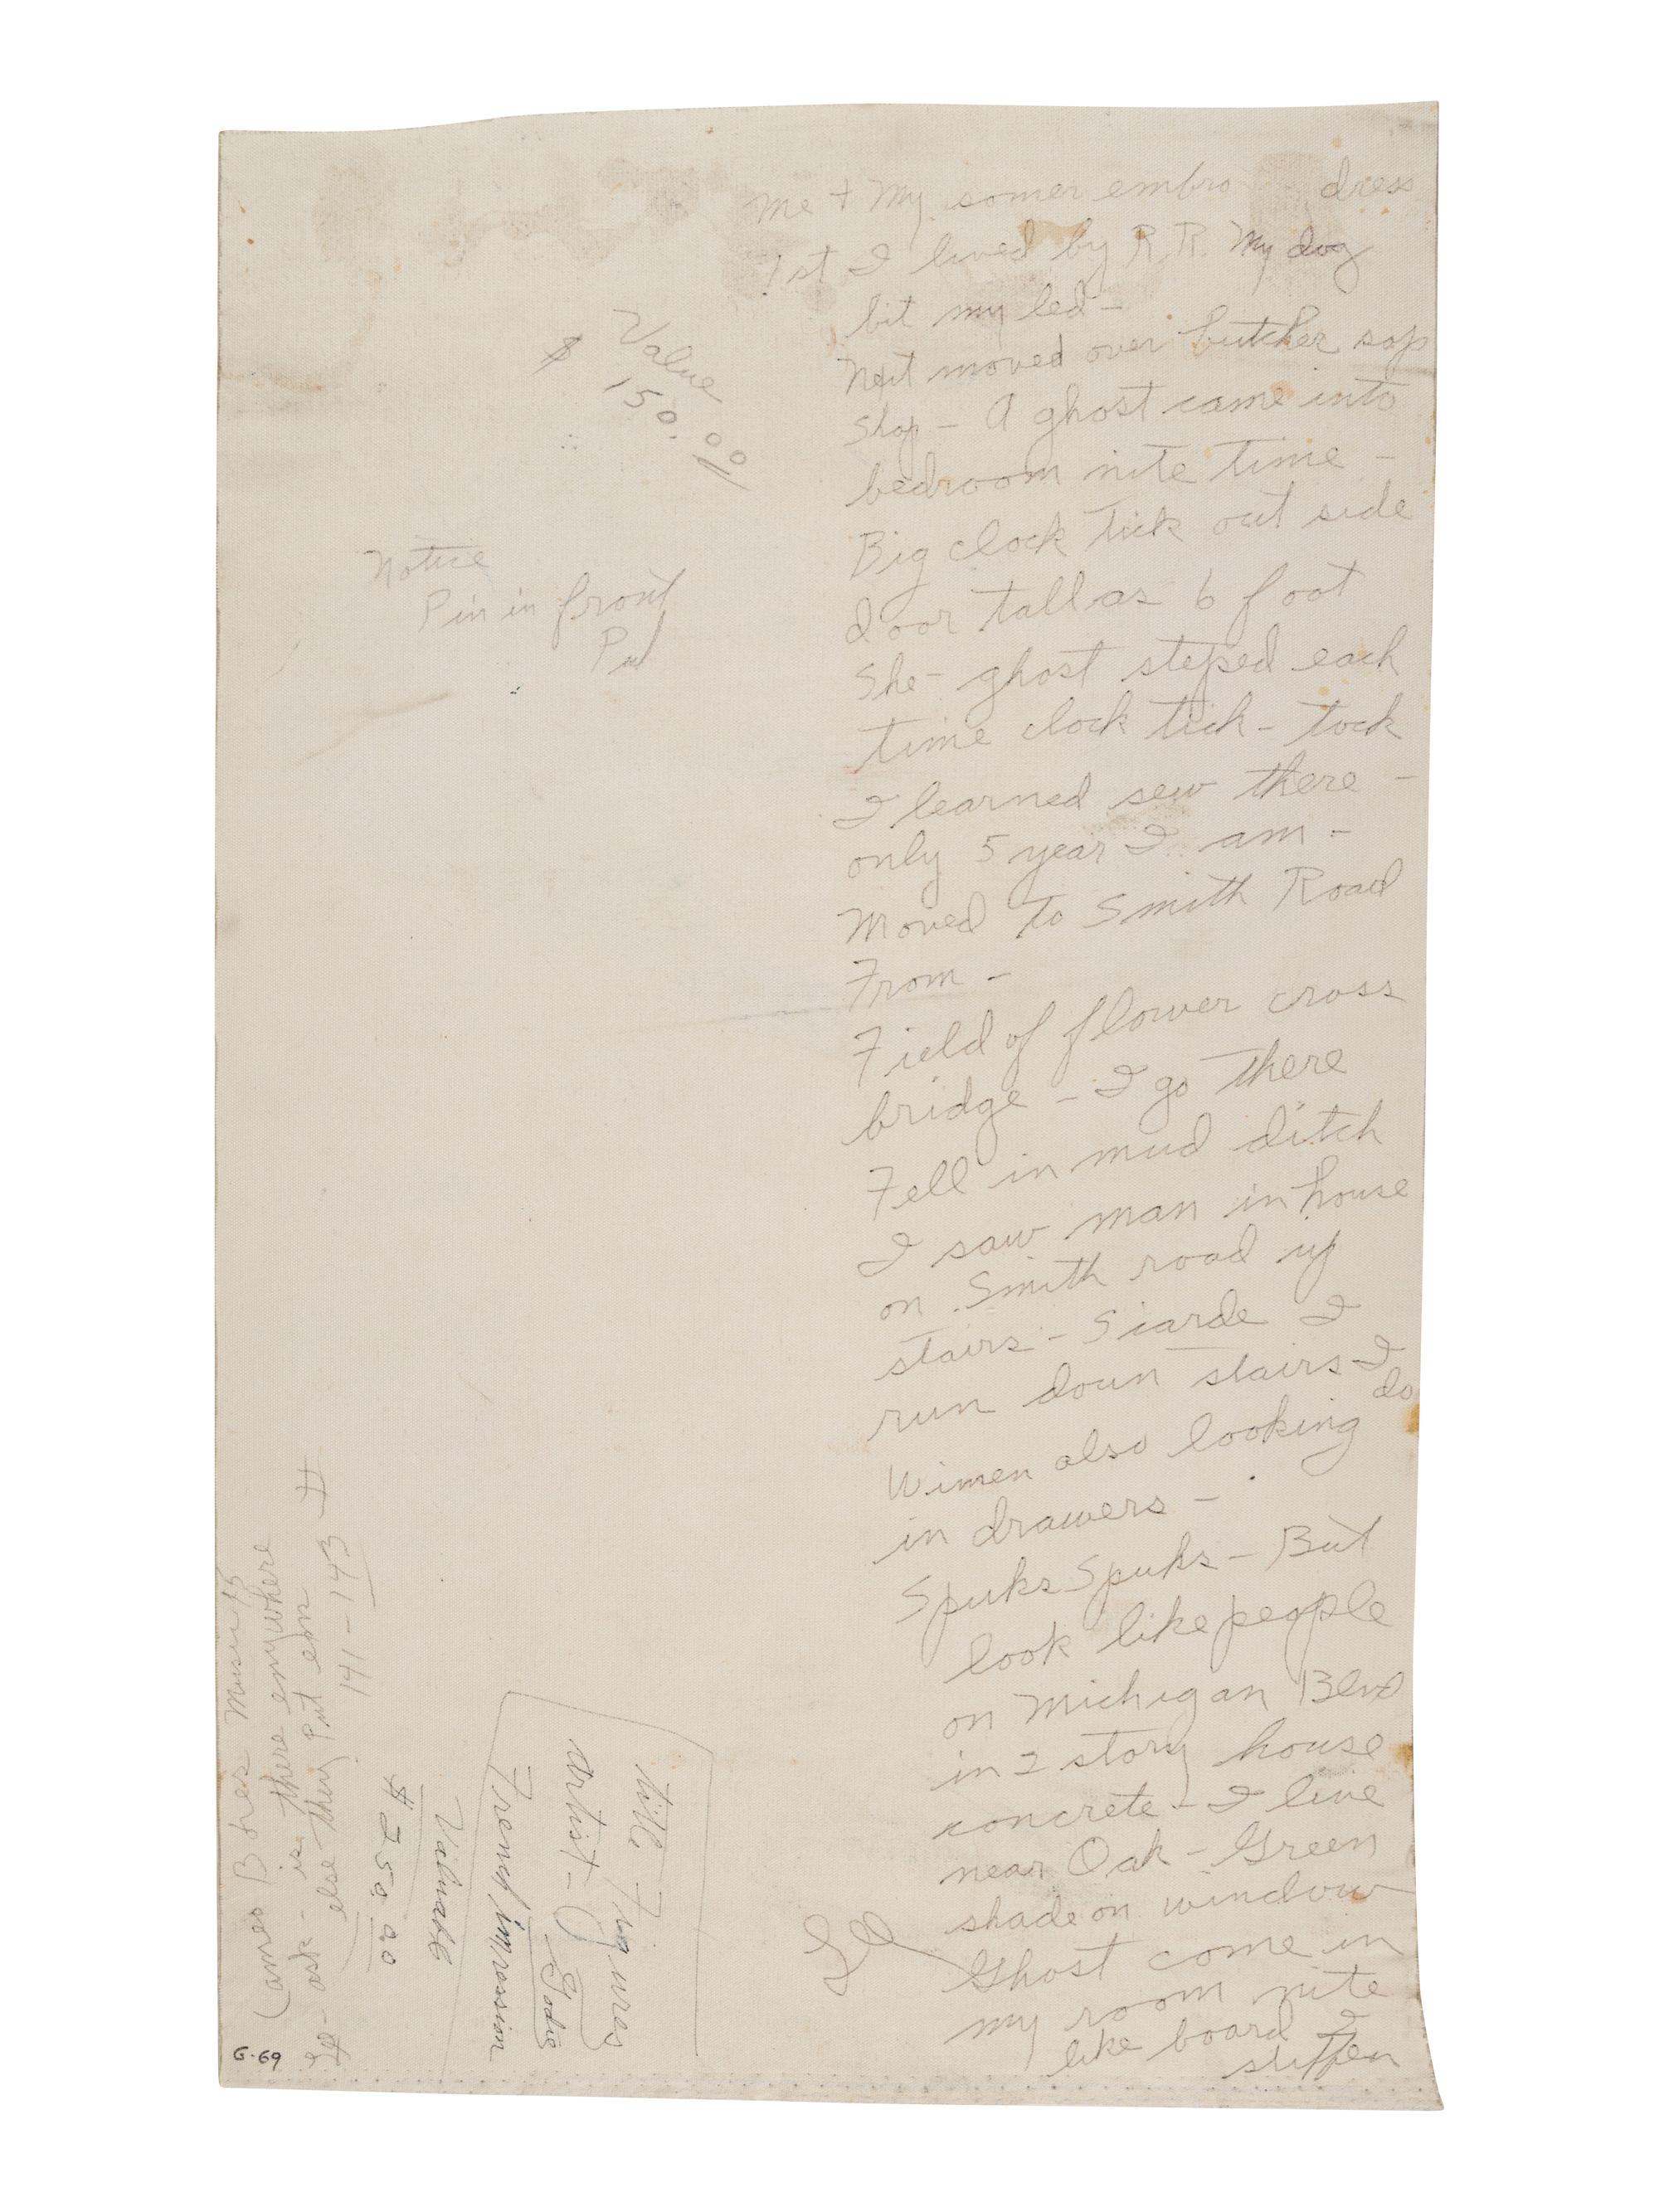 Me + My somer embro dress
1st I lived by R.R. My dog
bit my led -
Next moved over butcher sop
Shop - A ghost came into
bedroom nite time -
Big clock tick out side
door tall as 6 foot
She - ghost steped each
time clock tick - tock
I learned sew there -
only 5 year I am -
Moved to Smith Road
From -
Field of flower cross
bridge - I go there
Fell in mud ditch
I saw man in house
on Smith road up
stairs - Siarde I
run doun stairs I
do
Wimen also looking
in drawers -
Spuks Spuks - But
look like people
on Michigan Blvd
in 2 story house
concrete - I live
near Oak - Green
shade on window
Ghost come in
my room nite
like board I
stiffen
Value
$ 150.00
Notice
Pin in front
Pd
title Figures
artist - Godie
French impression
Valuable
$ 250.00
ask - is there enywhere
else they Put em
141 - 143
G-69